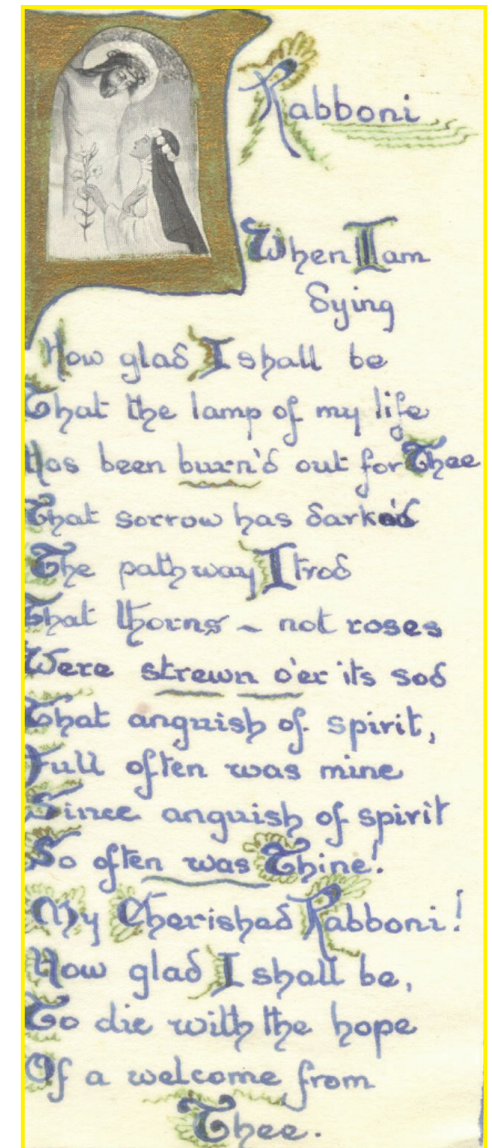 Rabboni
When I am
dying
How glad I shall be
That the lamp of my life
Has been burn'd out for Thee
That sorrow has dark'd
The pathway I trod
That thorns ~ not roses
Were strewn o'er its sod
That anguish of spirit,
Full often was mine
Since anguish of spirit
So often was Thine!
My Cherished Rabboni!
How glad I shall be,
To die with the hope
Of a welcome from
Thee.